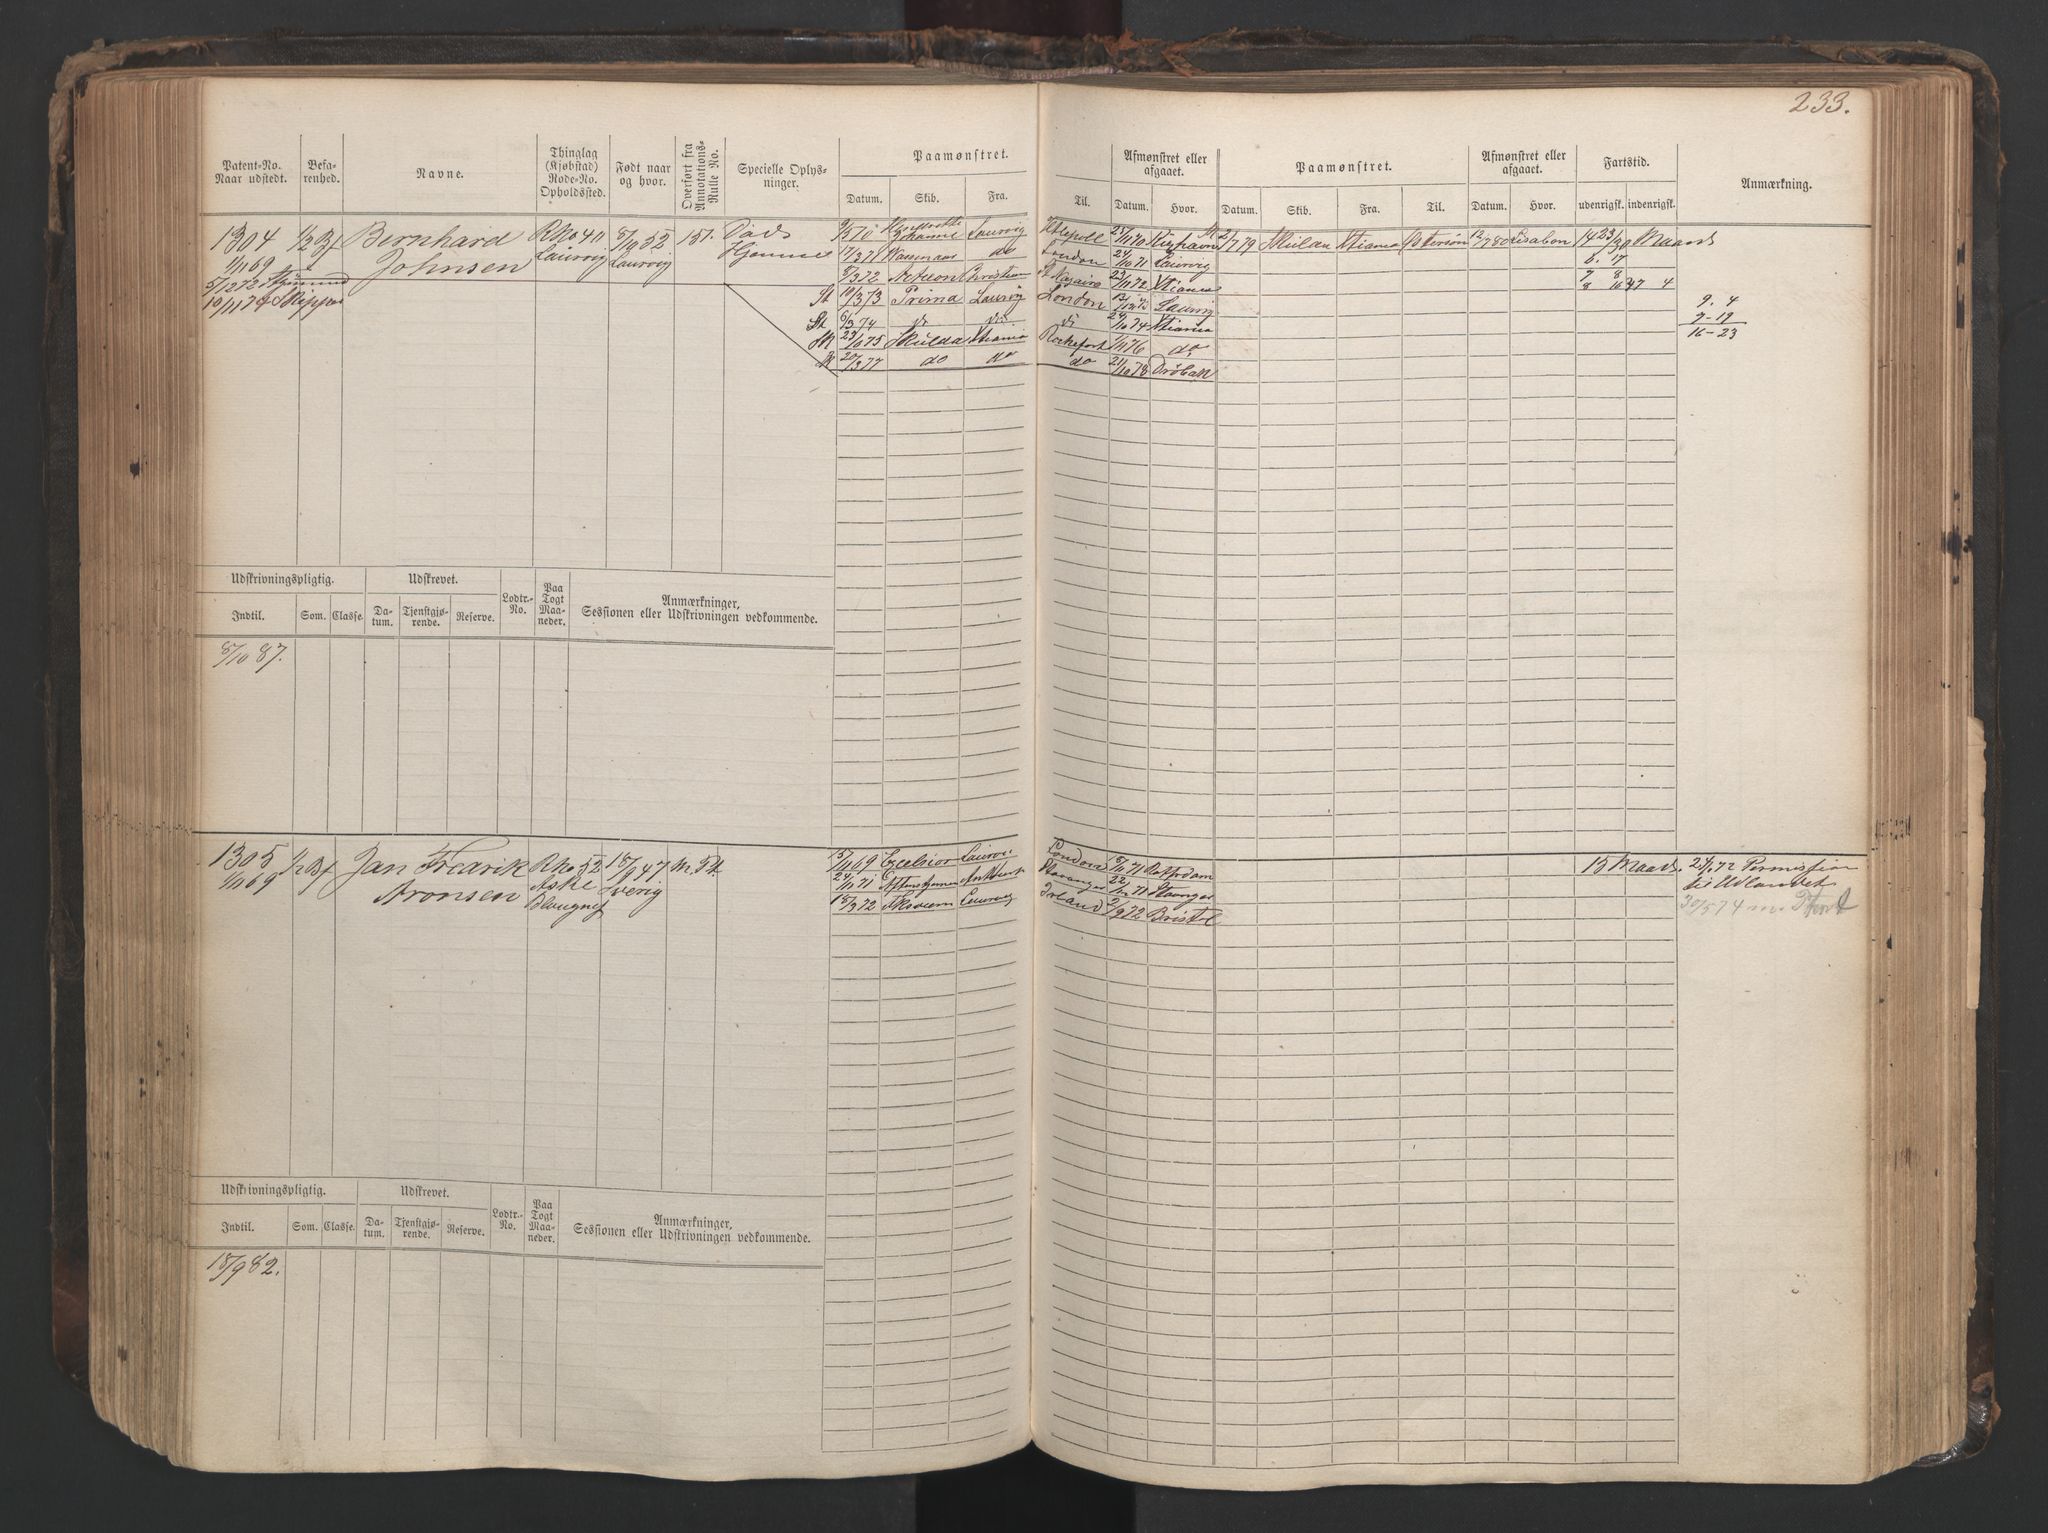 233.
Patent-No. Naar udstedt.
Befarenhed.
Navne.
Thinglag (Kjøbstad) Rode-No. Opholdssted.
Født naar og hvor.
Overført fra Annotations-Rulle No.
Specielle Oplysninger.
Paamønstret.
Datum. Skib. Fra. Til.
Afmønstret eller afgaaet.
Datum. Hvor.
Paamønstret.
Datum. Skib. Fra. Til.
Afmønstret eller afgaaet.
Datum. Hvor.
Fartstid.
udenrigsk. indenrigsk.
Anmærkning.
1304 1/2 Bf Bernhard Rno 40 8/10 52 151. Døds
1/1 69 Johnsen Laurvig Laurvig Hjemme
5/12 72 Styrmand
10/11 74 Skipper
9/5 70 Johanne Laurvig Htlepoll 24/11 70
17/3 71 do London 24/10 71 Laurvig
8/3 72 Christian St Nazaire 23/11 72 Xtiania
St 10/3 73 Prima Laurvig London Laurvig
St 6/3 74 do do do 24/10 74 Xtiania
St 23/10 75 Skulda Xtiania Rochefort 1/11 76 do
St 20/3 77 do do do 21/10 78 Drøbak
St 2/7 79 Skulda Xtiania 12/7 80 Lisabon 14 23/30 Maand
6. 17
7 8
8 16 47 4
9. 4
7-19
16-23
Udskrivningspligtig. Udskrevet. Lodtr.-No. Paa Togt Maaneder. Anmærkninger, Sessionen eller Udskrivningen vedkommende.
Indtil. Som. Classe. Datum. Tjenstgjørende. Reserve.
8/10 87.
1305 1/2 Bf Jan Fredrik Rno 52 18/9 47 m. 54.
1/1 69 Aronsen Aske Sverig
5/11 69 Excelsior Laurvig London 18/11 71 Rotterdam 15 Maand. 2/1 72 Permission
24/11 71 Stavanger 22/12 71 Stavanger til Udlandet
18/3 72 Laurvig Irland 2/9 72 Bristol 30/5 74
Udskrivningspligtig. Udskrevet. Lodtr.-No. Paa Togt Maaneder. Anmærkninger, Sessionen eller Udskrivningen vedkommende.
Indtil. Som. Classe. Datum. Tjenstgjørende. Reserve.
18/9 82.